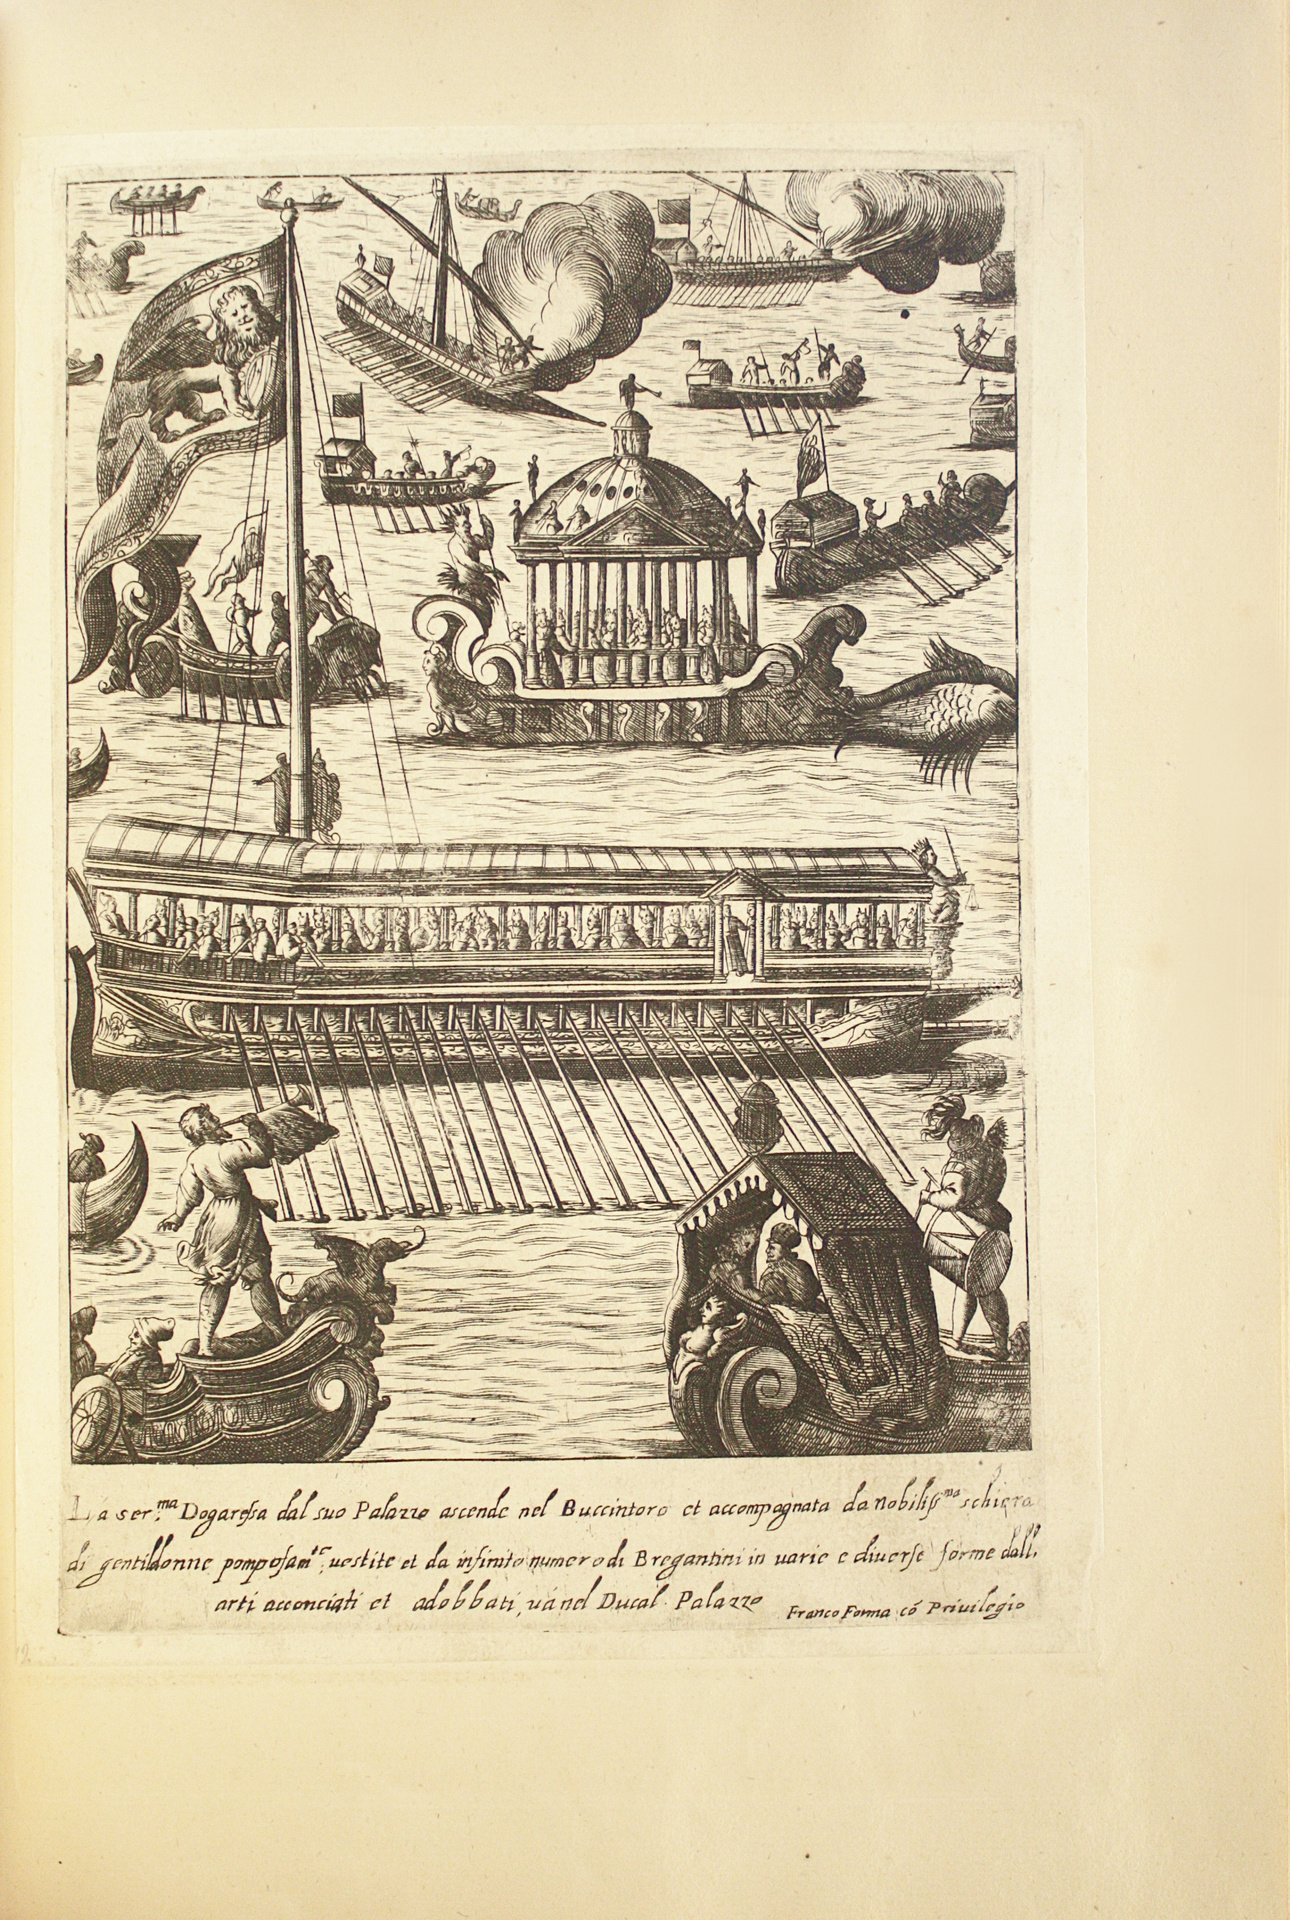 La ser.ma Dogaressa dal suo Palazzo ascende nel Buccintoro et accompagnata da nobiliss.ma schiera
di gentildonne pomposam.te uestite et da infinito numero di Bregantini in uarie e diuerse forme dall'
arti acconciati et adobbati, uà nel Ducal Palazzo
Franco Forma cõ Privilegio